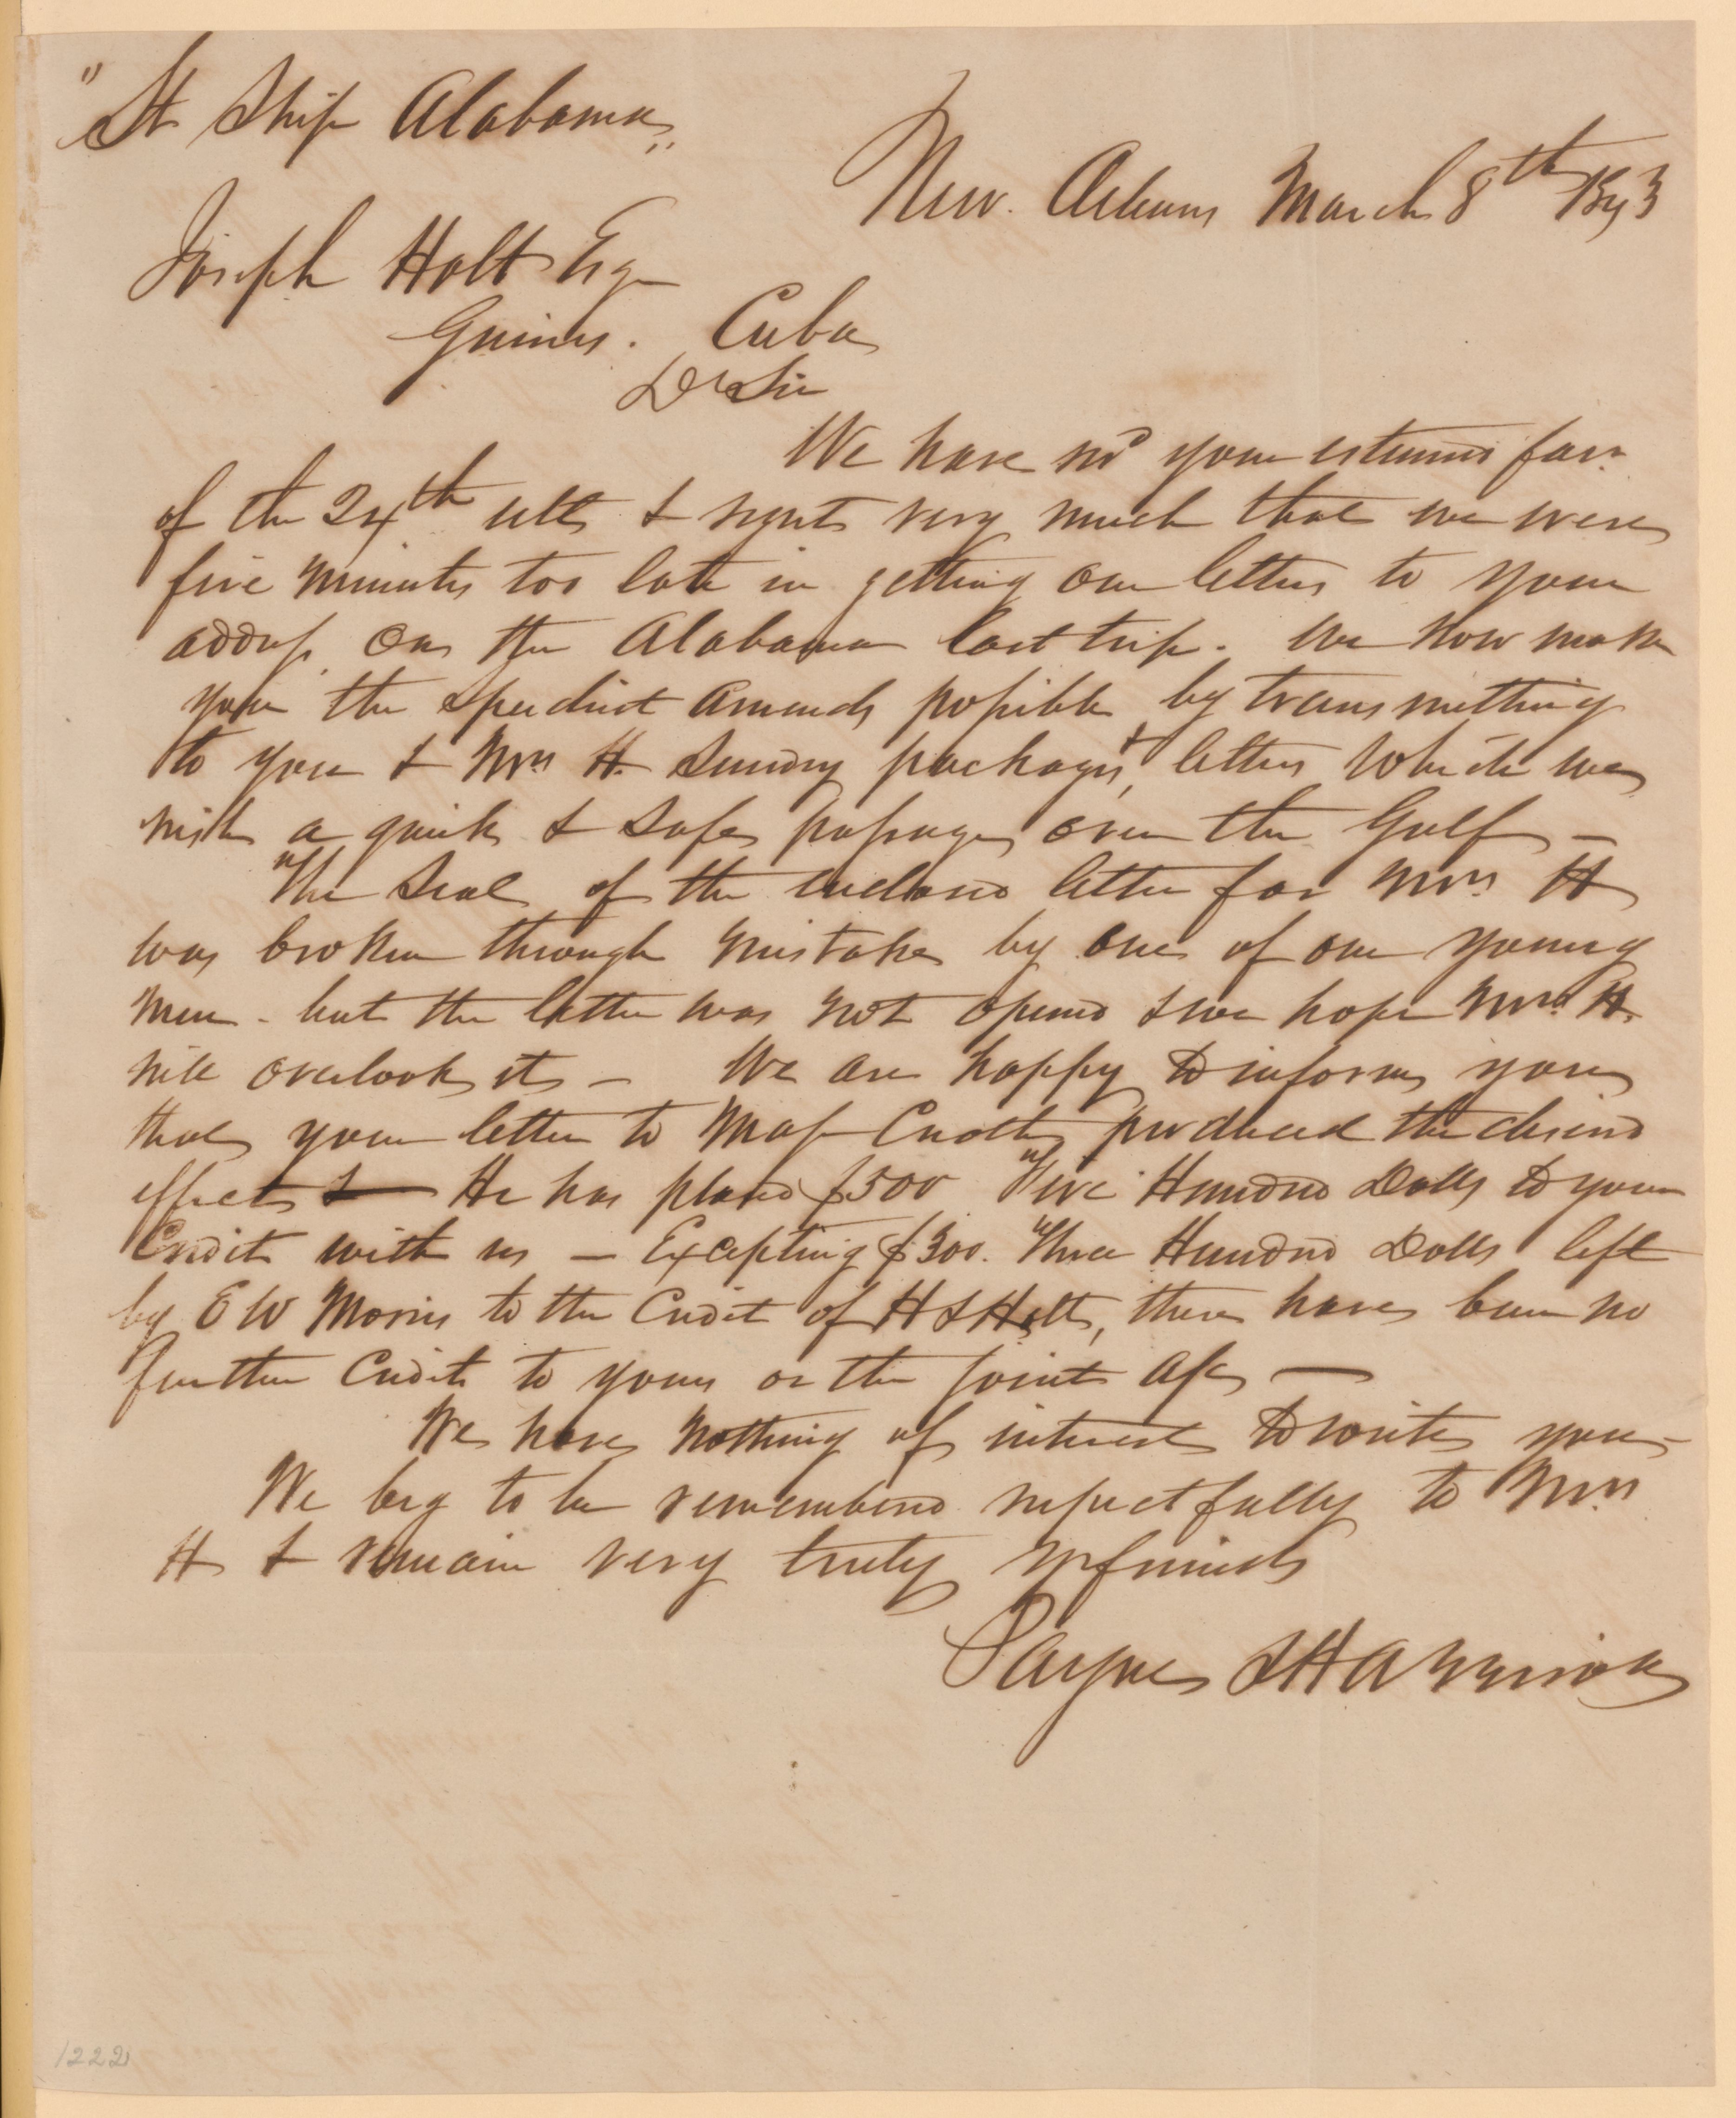 "St Ship Alabama"
New. Orleans March 8th 1843
Joseph Holt Esq
Guines. Cuba
Dr Sir
We have recd your esteemed favr
of the 24th ulto & regret very much that we were
five minutes too late in getting our letters to your
address on the Alabama last trip. We now make
you the speediest amends possible by transmitting
to you & Mrs H. Sundry packages & letters which we
wish a quick & safe passage over the Gulf –
The Seal of the enclosed letter for Mrs H
was broken through mistake by one of our young
men - but the letter was not opened & we hope Mrs. H.
will overlook it – We are happy to inform you
that your letter to produced the desired
effect & He has placed $500 Five Hundred Dolls to your
Credit with us – Excepting $300. Three Hundred Dolls left
by E W Morris to the Credit of H & Holt, there have been no
further Credits to yours or the joint a/c —
We have nothing of interest to write you –
We beg to be remembered respectfully to Mrs
H & remain very truly yr friends
Payne & Harrison
1222